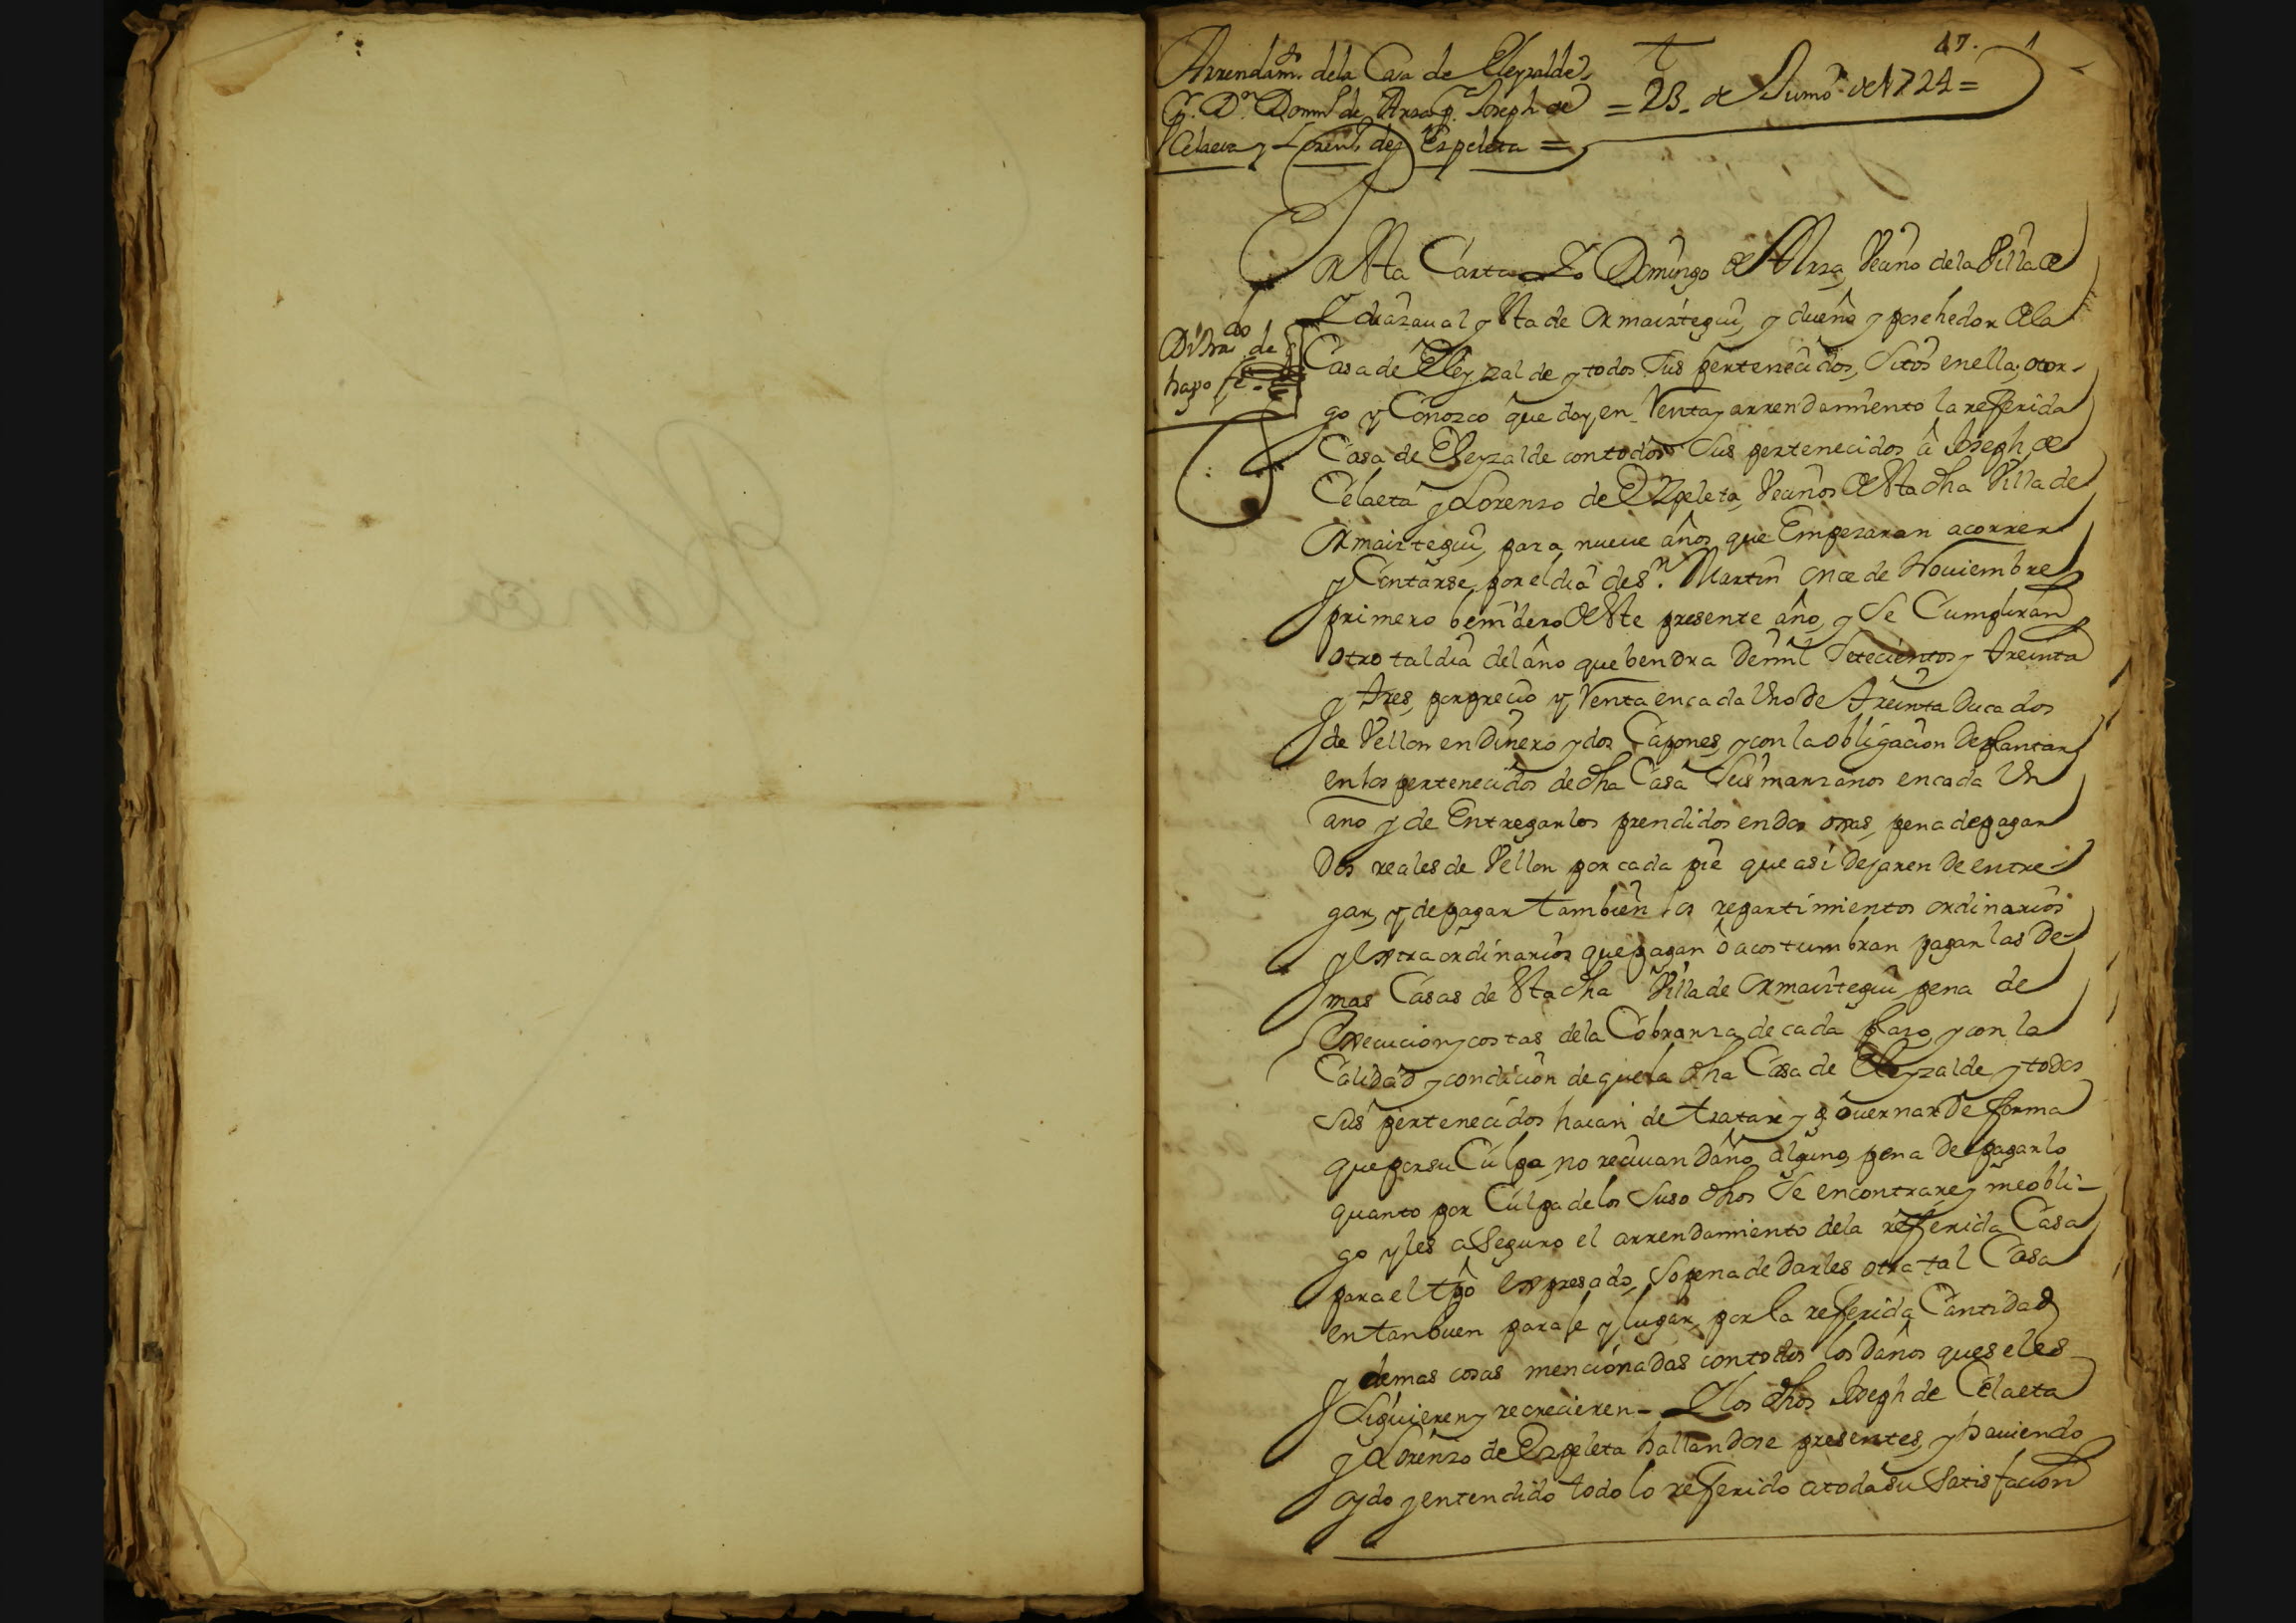 47.
Arrendam.to dela Casa de Eleyzalde,
D.n Dom.o de Arza, Joseph de = 23. de Junio de 1724 =
Celaeta y Lorenzo de Ezpeleta =
Por esta Carta Yo Domingo de Arza, vecino dela Villa de
Zumarraga y esta de Ormaiztegui, y dueño y posehedor dela
Casa de Eleyzalde y todos sus pertenecidos, sitos en ella; otor-
go y Conozco que doy en Renta y arrendamiento la refferida
Casa de Eleyzalde con todos sus pertenecidos â Joseph de
Celaeta y Lorenzo de Ezpeleta, vecinos desta dha Villa de
Ormaiztegui, para nueue años, que Empezaran acorrer
y Contarse, por el dia de S.n Martin once de Nouiembre
primero benidero deste presente año, y se Cumpliran
otro tal dia del año que bendra de mil Setecientos y treinta
y tres, por precio y Renta en cada Uno de treinta Ducados
de Vellon en Dinero y dos Capones, y con la obligacion de plantar
en los pertenecidos de dha Casa Seis manzanos en cada Un
ano y de Entregarlos prendidos en dos oxas, pena de pagar
Dos reales de Vellon por cada pie que asi Dejaren de entre-
gar, y de pagar tambien los repartimientos ordinarios
y extraordinarios que pagan ô acostumbran pagar las De-
mas Casas de esta dha Villa de Ormaiztegui, pena de
Execucion y costas dela Cobranza de cada plazo, y con la
Calidad y condicion de que la dha Casa de Eleyzalde y todos
sus pertenecidos haian de tratar y gouernar de forma
que por su Culpa, no reciuan Daño alguno, pena de pagarlo
quanto por Culpa de los Suso dhos se encontrare, y me obli-
go y les aseguro el arrendamiento dela refferida Casa
para el tpo expresado, so pena de Darles otra tal Casa
en tan buen paraje y lugar, por la refferida Cantidad
y demas cosas mencionadas con todos los Daños que se les
siguieren y recrecieren - Y los dhos Joseph de Celaeta
y Lorenzo de Ezpeleta hallandose presentes, y hauiendo
oydo y entendido todo lo refferido a toda su Satisfacion